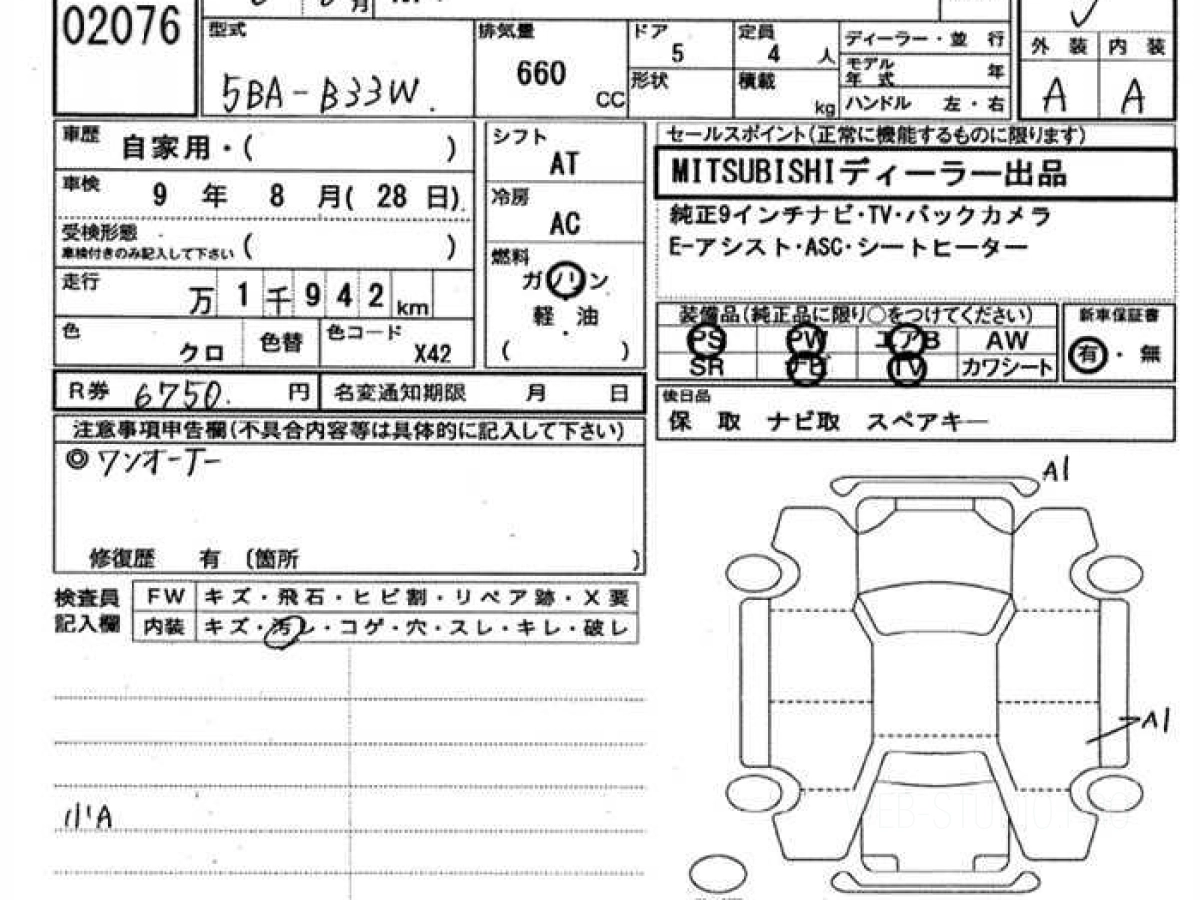 02076
型式
5BA-B33W.
排気量
660
CC
ドア
5
形状
定員
4 人
積載
kg
ディーラー・並 行
モデル
年 式 年
ハンドル 左・右
外 装 内 装
A A
車歴 自家用・( )
車検 9 年 8 月( 28 日)
受検形態
車検付きのみ記入して下さい ( )
走行 万 1 千 9 4 2 km
色 クロ 色替 色コード X42
シフト
AT
冷房
AC
燃料
ガソリン
軽・油
( )
セールスポイント(正常に機能するものに限ります)
MITSUBISHIディーラー出品
純正9インチナビ・TV・バックカメラ
E-アシスト・ASC・シートヒーター
装備品(純正品に限り○をつけてください)
PS PW エアB AW
SR ナビ TV カワシート
新車保証書
有・無
R券 6750. 円 名変通知期限 月 日
後日品
保 取 ナビ取 スペアキー
注意事項申告欄(不具合内容等は具体的に記入して下さい)
◎ワンオーナー
修復歴 有 〔箇所 〕
検査員
記入欄
FW キズ・飛石・ヒビ割・リペア跡・X要
内装 キズ・汚レ・コゲ・穴・スレ・キレ・破レ
小A
A1
A1